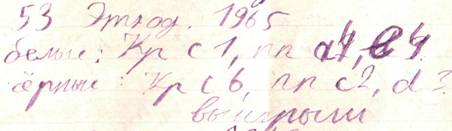 53 Этюд. 1965
белые: Кр c1, пп d4, e4.
чёрные: Кр c6, пп c2, d3.
выигрыш